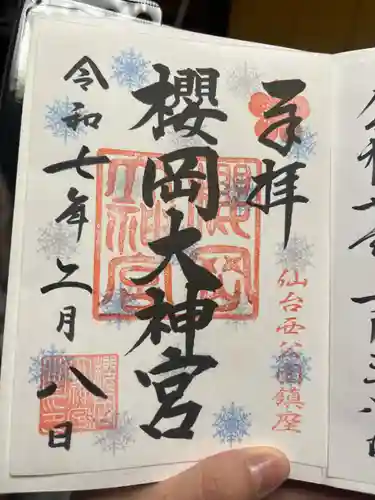 奉拝
仙台西公園鎮座
櫻岡大神宮
櫻岡大神宮
令和七年二月八日